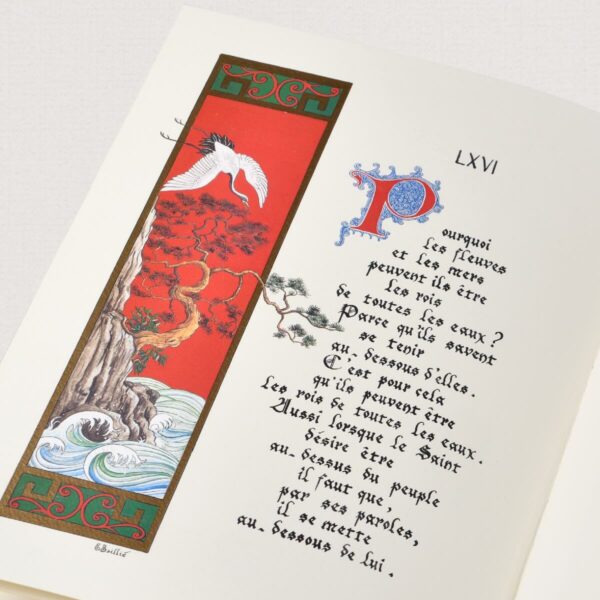 LXVI
Pourquoi
les fleuves
et les mers
peuvent ils être
les rois
de toutes les eaux?
Parce qu'ils savent
se tenir
au-dessous d'elles.
C'est pour cela
qu'ils peuvent être
les rois de toutes les eaux.
Aussi lorsque le Saint
désire être
au-dessus du peuple
il faut que,
par ses paroles,
il se mette
au-dessous de lui.